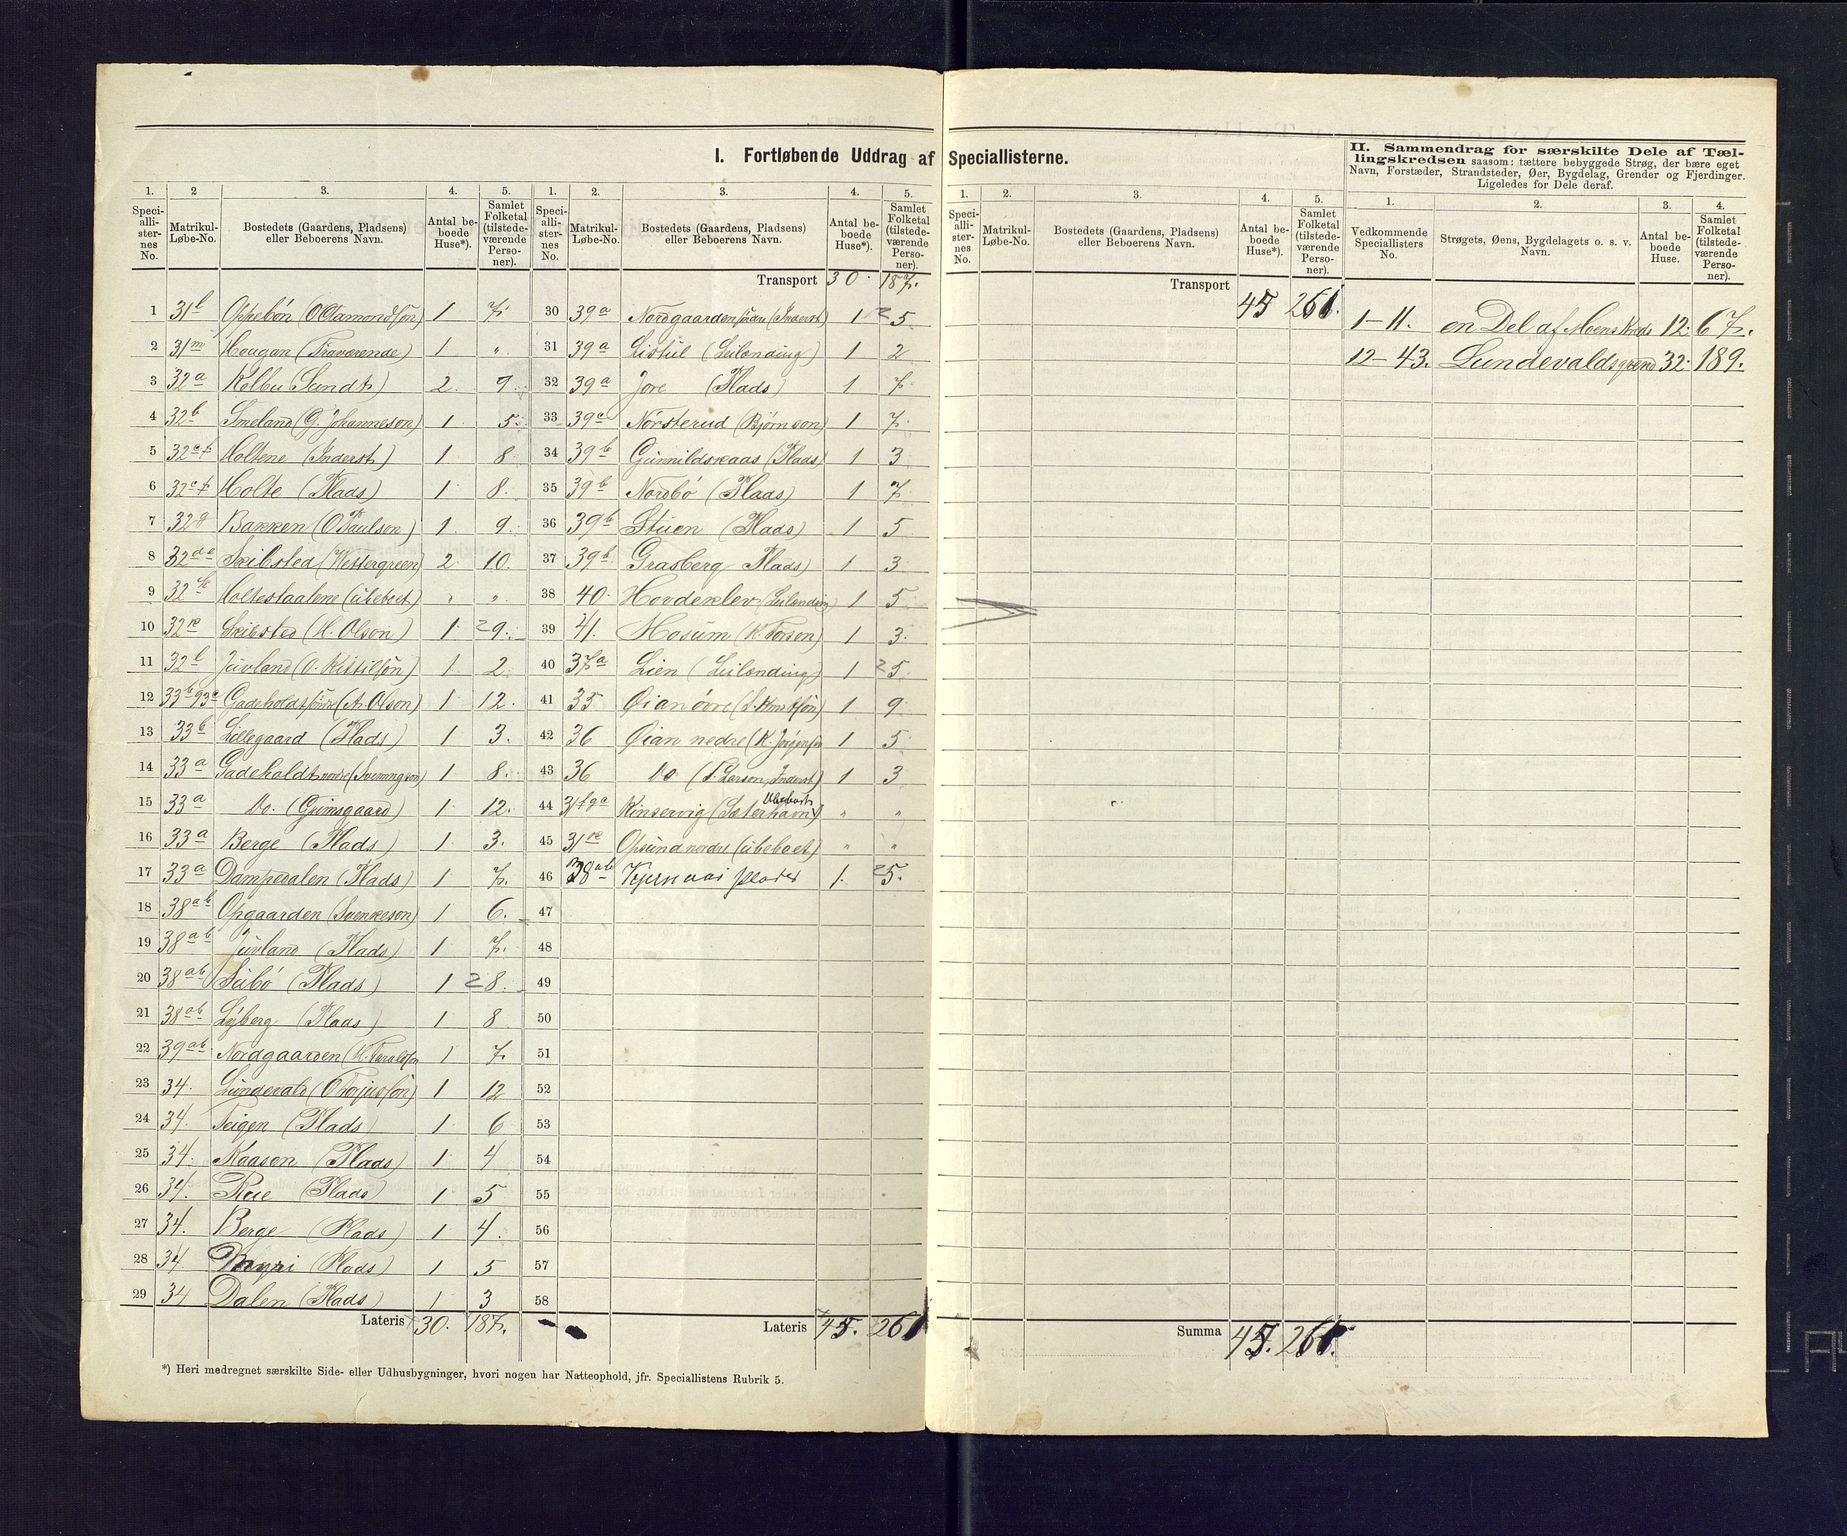 I. Fortløbende Uddrag af Speciallisterne.
II. Sammendrag for særskilte Dele af Tæl-
lingskredsen saasom: tættere bebyggede Strøg, der bære eget
Navn, Forstæder, Strandsteder, Øer, Bygdelag, Grender og Fjerdinger.
Ligeledes for Dele deraf.
1. 2 3. 4. 5.
Speciallisternes No. Matrikul-Løbe-No. Bostedets (Gaardens, Pladsens) eller Beboerens Navn. Antal beboede Huse*). Samlet Folketal (tilstedeværende Personer).
1 31b Oppebøn (O Aamondssøn) 1 7.
2 31m Hougan (Fraværende) 1 "
3 32a Kolbu (Sundt) 2 9
4 32b Smeland (G. Johanneson) 1 5.
5 Holtene (Inderst) 1 8
6 Holte (Plads) 1 8.
7 Bakken (O Paulson) 1 9.
8 32de Skibsted (Wettergreen) 2 10.
9 32h Holtestaalene (ubeboet) " "
10 32k Skibsted (H. Olson) 1 9.
11 32l Juvland (O. Kittilsøn) 1 2.
12 33b 93c Gadeholdt søndre (A. Olson) 1 12.
13 33b Lillegaard (Plads) 1 3.
14 33a Gadeholdt nordre (Svenningson) 1 8.
15 33a Do. (Grimsgaard) 1 12.
16 33a Berge (Plads) 1 3.
17 33a Dampedalen (Plads) 1 7.
18 38ab Opgaarden (Svenkeson) 1 6.
19 38ab Juvland (Plads) 1 7.
20 38ab Sæbø (Plads) 1 8.
21 38ab Lyberg (Plads) 1 8
22 39ab Nordgaarden (H. Taraldsøn 1 7
23 34. Lundevald (O Torjussøn) 1 12
24 34. Teigen (Plads) 1 6
25 34. Kaasen (Plads) 1 4
26 34. Rue (Plads) 1 5
27 34. Berge (Plads) 1 4.
28 34 Myri (Plads) 1 5
29 34 Dalen (Plads) 1 3
Lateris 30. 187.
*) Heri medregnet særskilte Side- eller Udhusbygninger, hvori nogen har Natteophold, jfr. Speciallistens Rubrik 5.
1. 2. 3. 4. 5.
Speciallisternes No. Matrikul-Løbe-No. Bostedets (Gaardens, Pladsens) eller Beboerens Navn. Antal beboede Huse*). Samlet Folketal (tilstedeværende Personer).
Transport 30. 187.
30 39a Nordgaarden søndre (Inderst) 1 5
31 39a Listul (Leilænding) 1 2
32 39a Jore (Plads) 1 7.
33 39c Nørsterud (Bjørnson) 1 7.
34 39b Gunnildskaas (Plads) 1 3
35 39b Nordbø (Plads) 1 7.
36 39b Stuen (Plads) 1 5
37 39b Grasberg Plads) 1 3
38 40. Hovdeklev (Leilænding) 1 5
39 41. Mosum (K. Torson) 1 3.
40 37a Lien (Leilænding) 1 5
41 35 Øian øvre (S. Knutsøn) 1 9
42 36 Øian nedre (K. Jørgensøn 1 5
43 36 Do (T. Larson, Inderst) 1 3
44 Kinservig (Sæterhavn) Ubeboet " "
45 31k Opsund nordre (ubeboet) " "
46 38ab 1. 5.
47
48
49
50
51
52
53
54
55
56
57
58
Lateris 45. 261
1. 2. 3. 4. 5.
Speciallisternes No. Matrikul-Løbe-No. Bostedets (Gaardens, Pladsens) eller Beboerens Navn. Antal beboede Huse*). Samlet Folketal (tilstedeværende Personer).
Transport 45 261.
Summa 45. 261.
1. 2. 3. 4.
Vedkommende Speciallisters No. Strøgets, Øens, Bygdelagets o. s. v. Navn. Antal beboede Huse. Samlet Folketal (tilstedeværende Personer).
1–11. en Del af Moens Kreds 12. 67.
12–43. Lundevaldsgrend 32. 189.